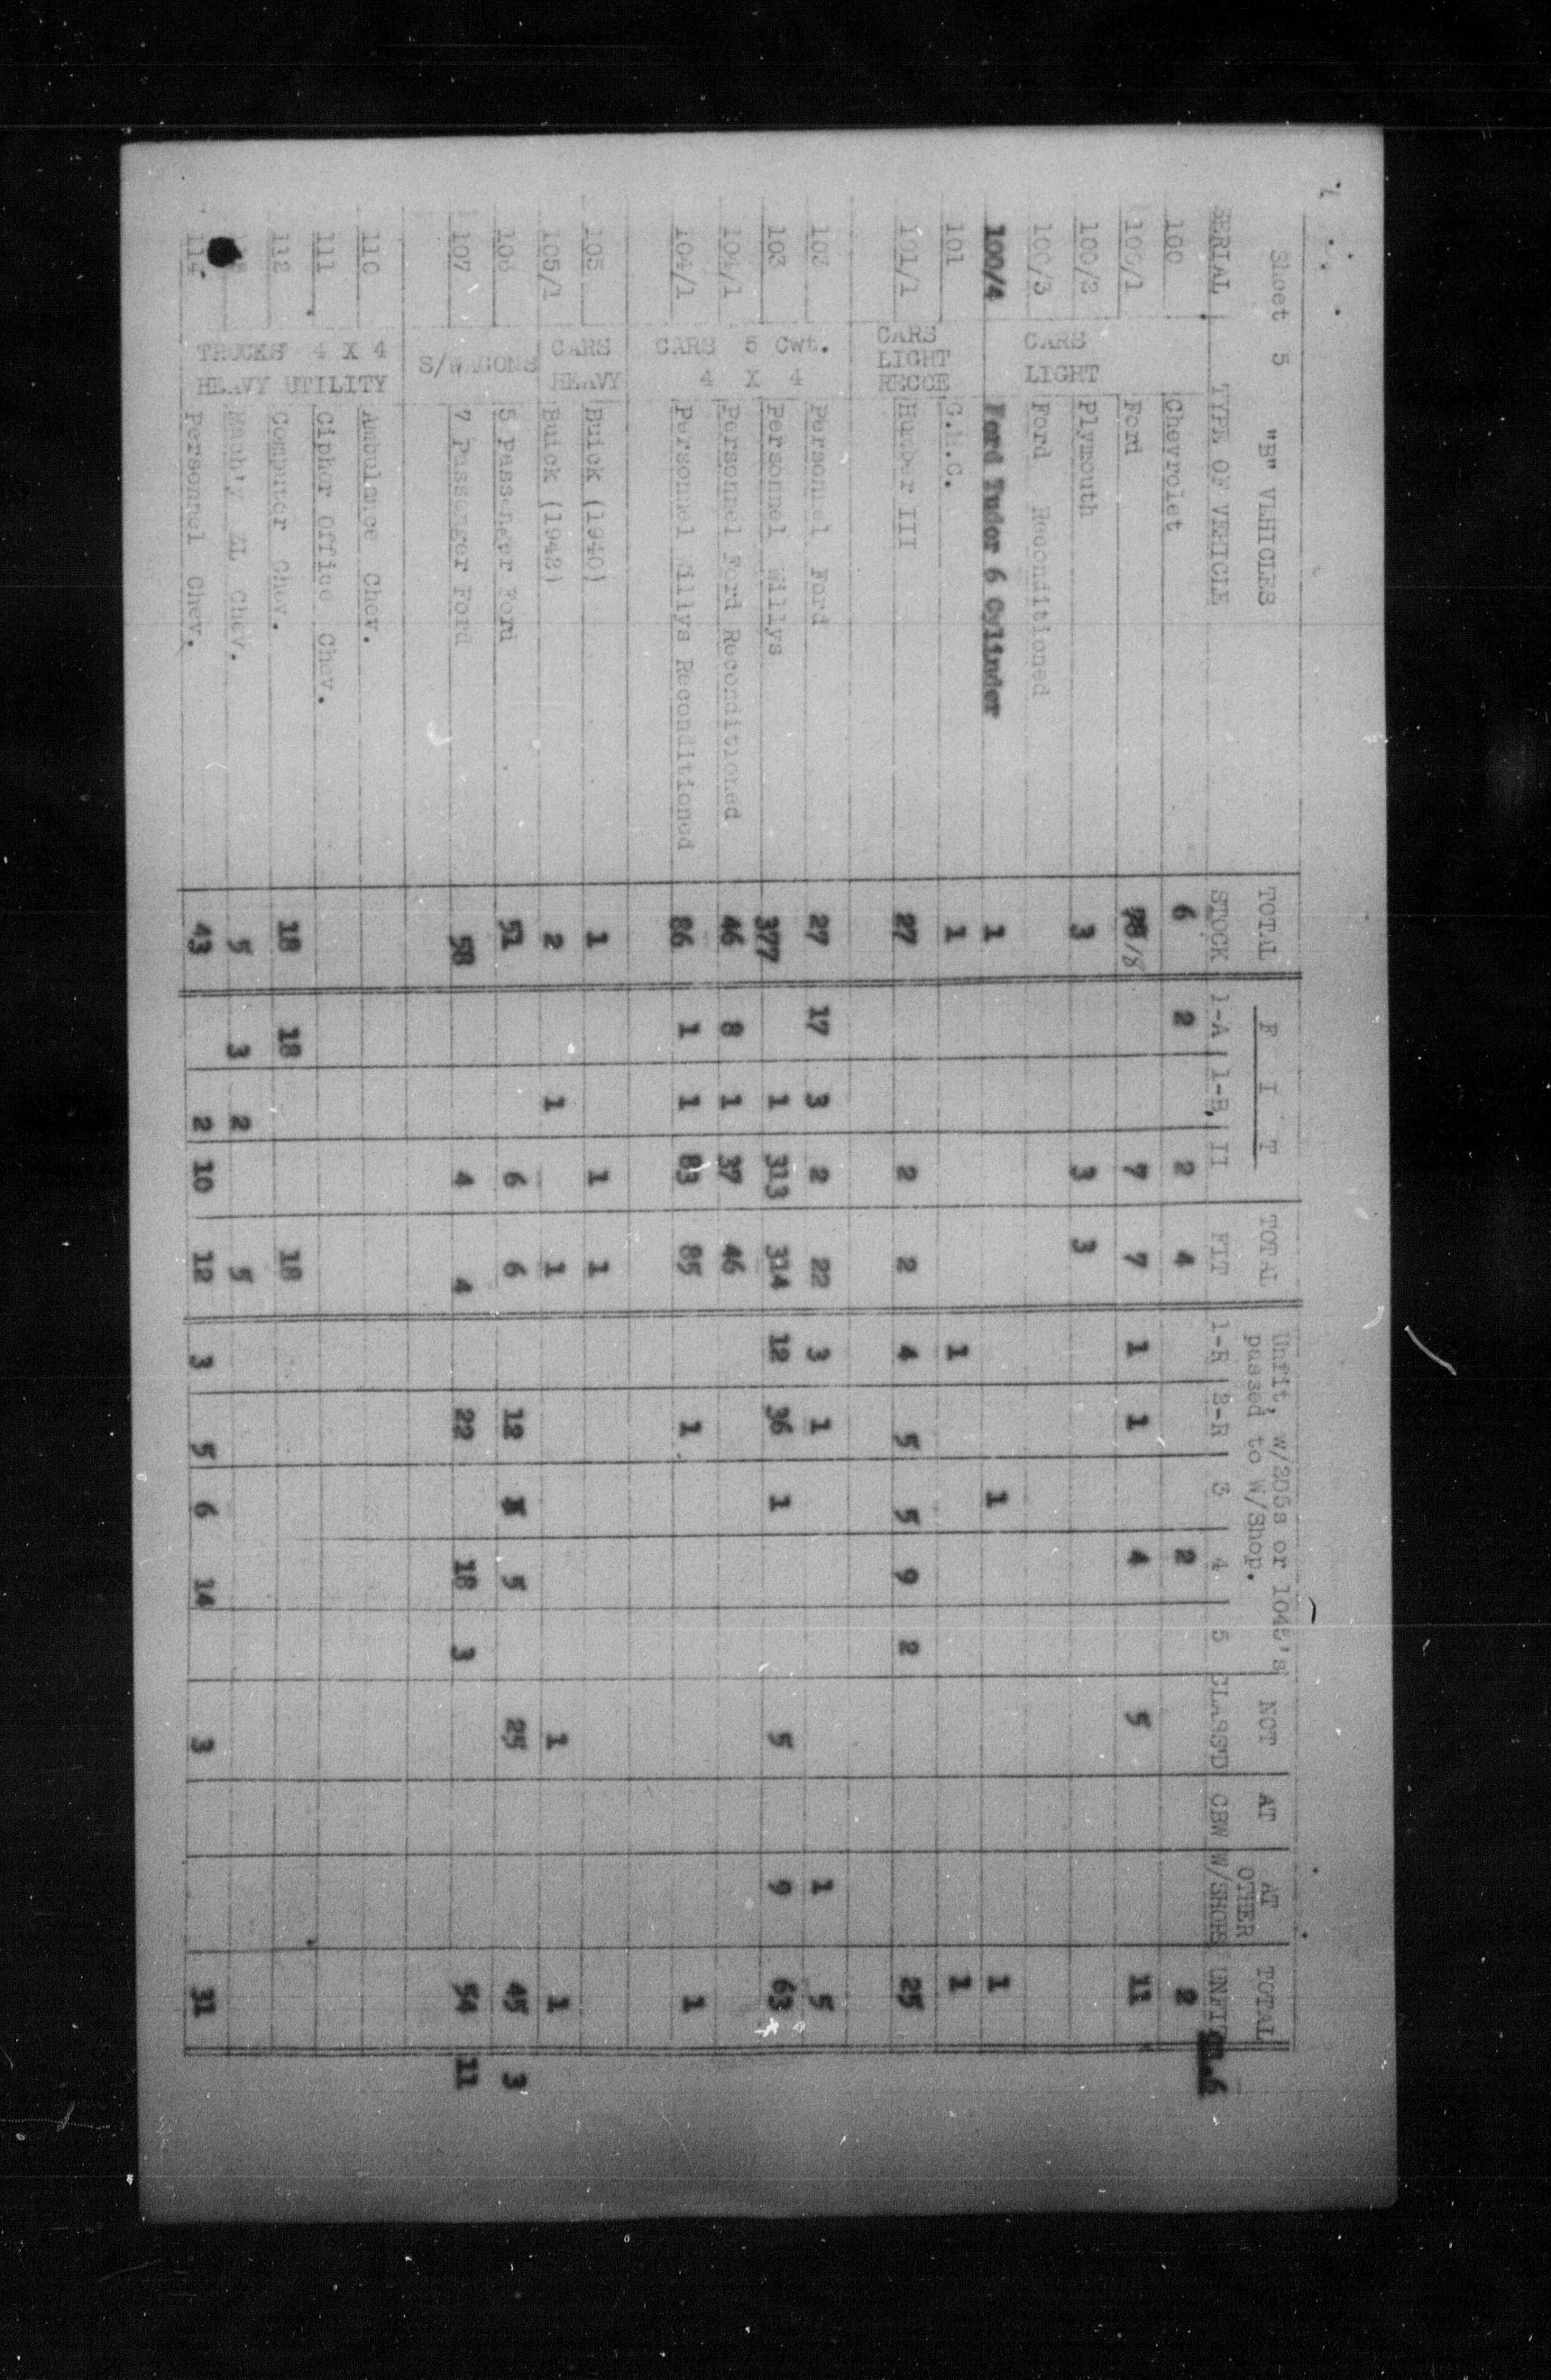 Sheet 5 "B" VEHICLES TOTAL F I T TOTAL Unfit, w/205s or 1045's passed to W/Shop. NOT AT AT OTHER TOTAL
SERIAL TYPE OF VEHICLE STOCK 1-A 1-B II FIT 1-R 2-R 3 4 5 CLASS'D CBW W/SHOPS UNFIT
CARS LIGHT
100 Chevrolet 6 2 2 4 2 2
100/1 Ford 18 7 7 1 1 4 5 11
100/2 Plymouth 3 3 3
100/3 Ford Reconditioned
100/4 Ford Tudor 6 Cylinder 1 1 1
CARS LIGHT RECCE
101 G.M.C. 1 1 1
101/1 Humber III 27 2 2 4 5 5 9 2 25
CARS 5 Cwt. 4 X 4
102 Personnel Ford 27 17 3 2 22 3 1 1 5
103 Personnel Willys 377 1 313 314 12 36 1 5 9 63
104/1 Personnel Ford Reconditioned 46 8 1 37 46
104/1 Personnel Willys Reconditioned 86 1 1 83 85 1 1
CARS HEAVY
105 Buick (1940) 1 1 1
105/1 Buick (1942) 2 1 1 1 1
S/WAGONS
106 5 Passenger Ford 51 6 6 12 5 25 45 3
107 7 Passenger Ford 58 4 4 22 18 3 54 11
TRUCKS 4 X 4 HEAVY UTILITY
110 Ambulance Chev.
111 Cipher Office Chev.
112 Computor Chev. 18 18 18
Mach'y ZL Chev. 5 3 2 5
114. Personnel Chev. 43 2 10 12 3 5 6 14 3 31